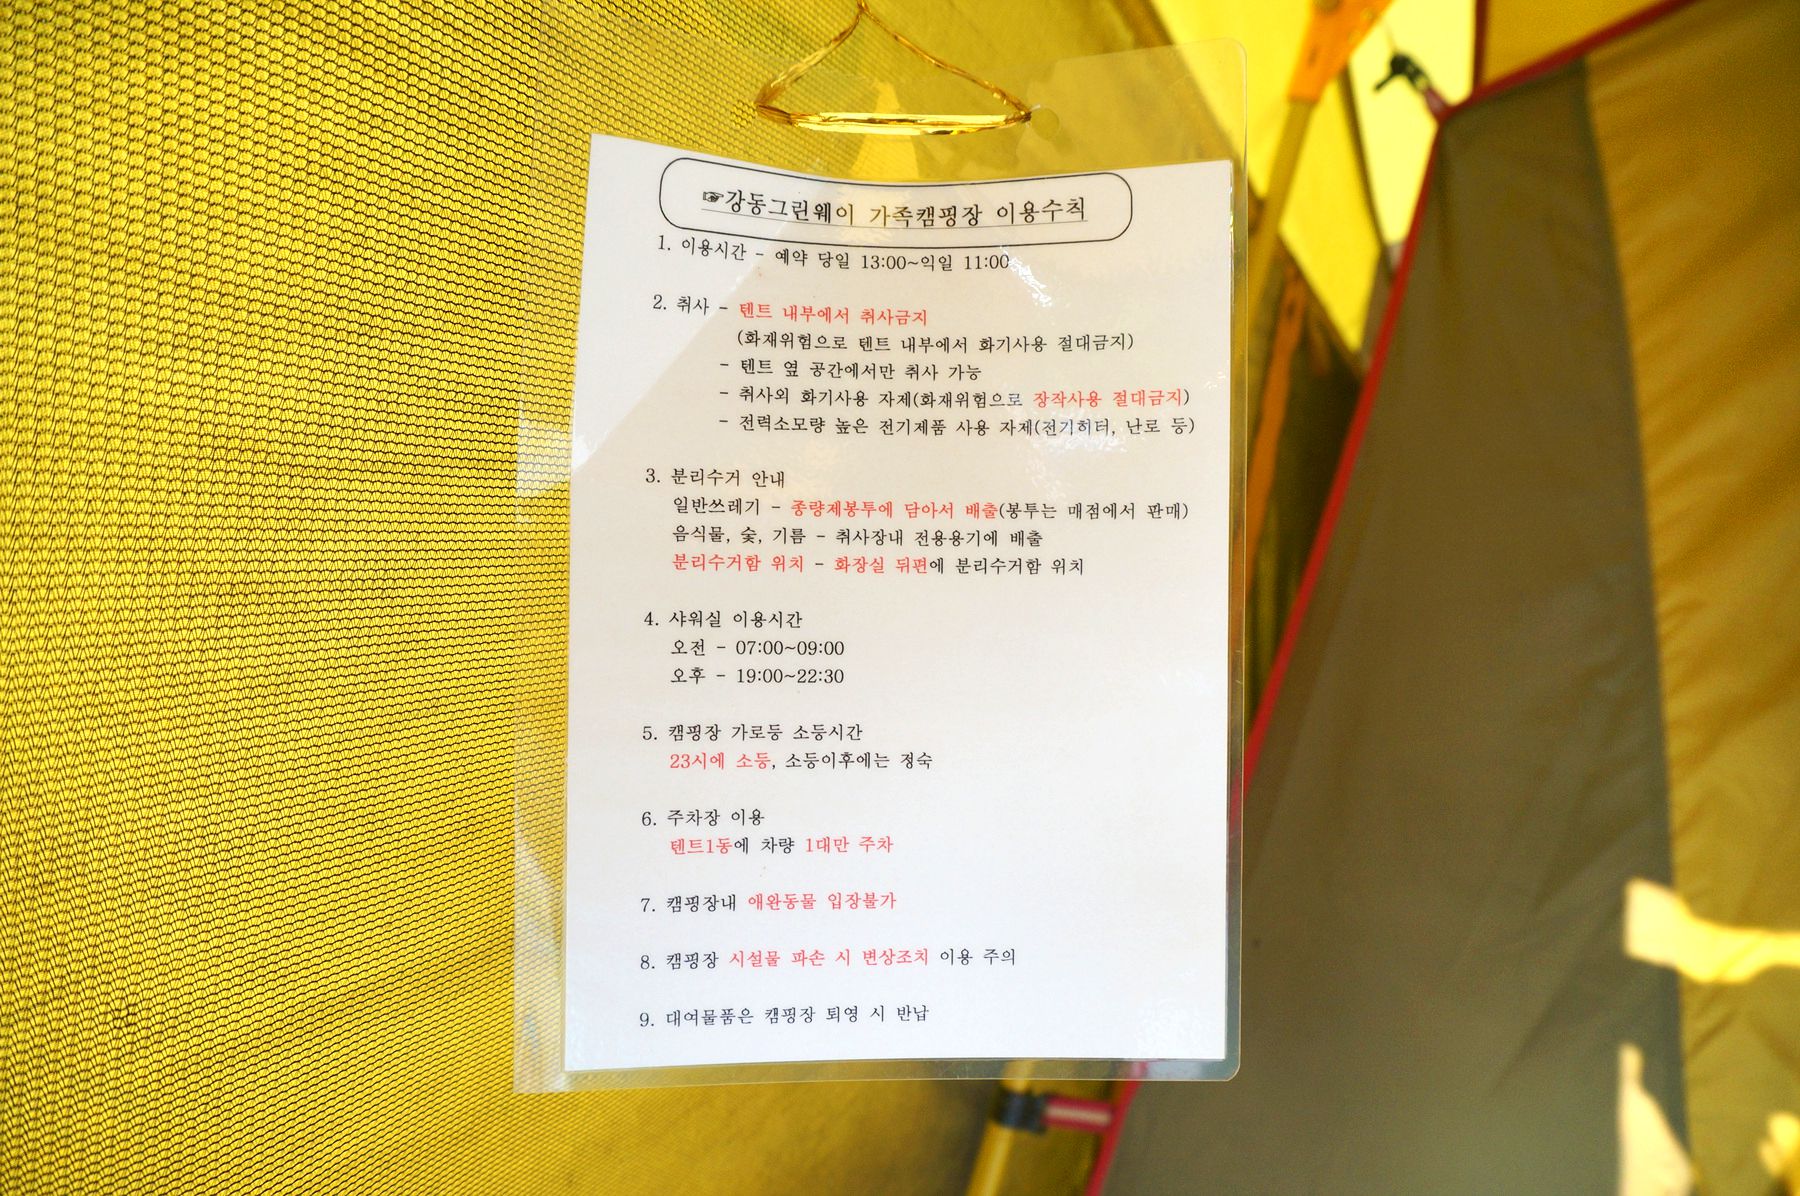 ☞강동그린웨이 가족캠핑장 이용수칙
1. 이용시간 - 예약 당일 13:00~익일 11:00
2. 취사 - 텐트 내부에서 취사금지
(화재위험으로 텐트 내부에서 화기사용 절대금지)
- 텐트 옆 공간에서만 취사 가능
- 취사외 화기사용 자제(화재위험으로 장작사용 절대금지)
- 전력소모량 높은 전기제품 사용 자제(전기히터, 난로 등)
3. 분리수거 안내
일반쓰레기 - 종량제봉투에 담아서 배출(봉투는 매점에서 판매)
음식물, 숯, 기름 - 취사장내 전용용기에 배출
분리수거함 위치 - 화장실 뒤편에 분리수거함 위치
4. 샤워실 이용시간
오전 - 07:00~09:00
오후 - 19:00~22:30
5. 캠핑장 가로등 소등시간
23시에 소등, 소등이후에는 정숙
6. 주차장 이용
텐트1동에 차량 1대만 주차
7. 캠핑장내 애완동물 입장불가
8. 캠핑장 시설물 파손 시 변상조치 이용 주의
9. 대여물품은 캠핑장 퇴영 시 반납